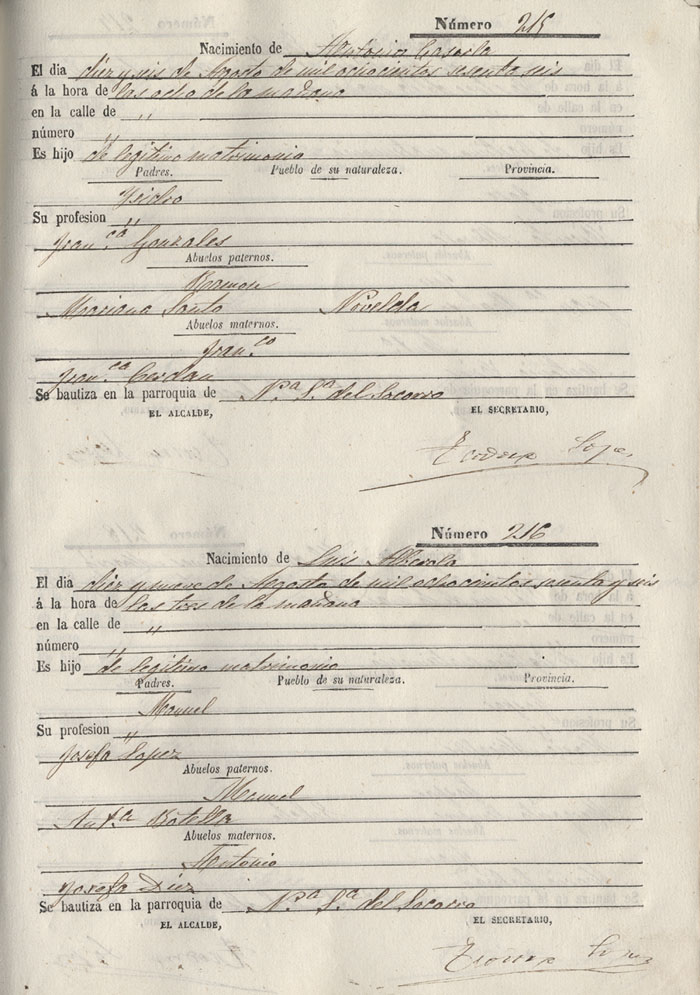 Número 215
Nacimiento de Antonio Cazorla
El dia diez y seis de Agosto de mil ochocientos sesenta seis
á la hora de las ocho de la mañana
en la calle de "
número "
Es hijo de legitimo matrimonio
Padres. Pueblo de su naturaleza. Provincia.
Ysidro
Su profesion "
Fran.ca Gonzales
Abuelos paternos.
Ramon
Mariana Santo Novelda
Abuelos maternos.
Fran.co
Fran.ca Cerdan
Se bautiza en la parroquia de N.a S.a del Socorro
EL ALCALDE, EL SECRETARIO,
Número 216
Nacimiento de Luis Alberola
El dia diez y nueve de Agosto de mil ochocientos sesenta y seis
á la hora de las tres de la mañana
en la calle de "
número "
Es hijo de legitimo matrimonio
Padres. Pueblo de su naturaleza. Provincia.
Manuel
Su profesion "
Josefa Lopez
Abuelos paternos.
Manuel
Ant.a Botella
Abuelos maternos.
Antonio
Josefa Diez
Se bautiza en la parroquia de N.a S.a del Socorro
EL ALCALDE, EL SECRETARIO,